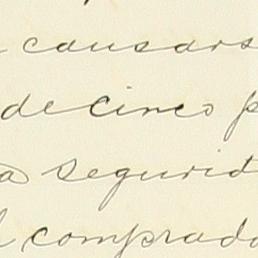 causars
de cinco p
a segurid
l comprado